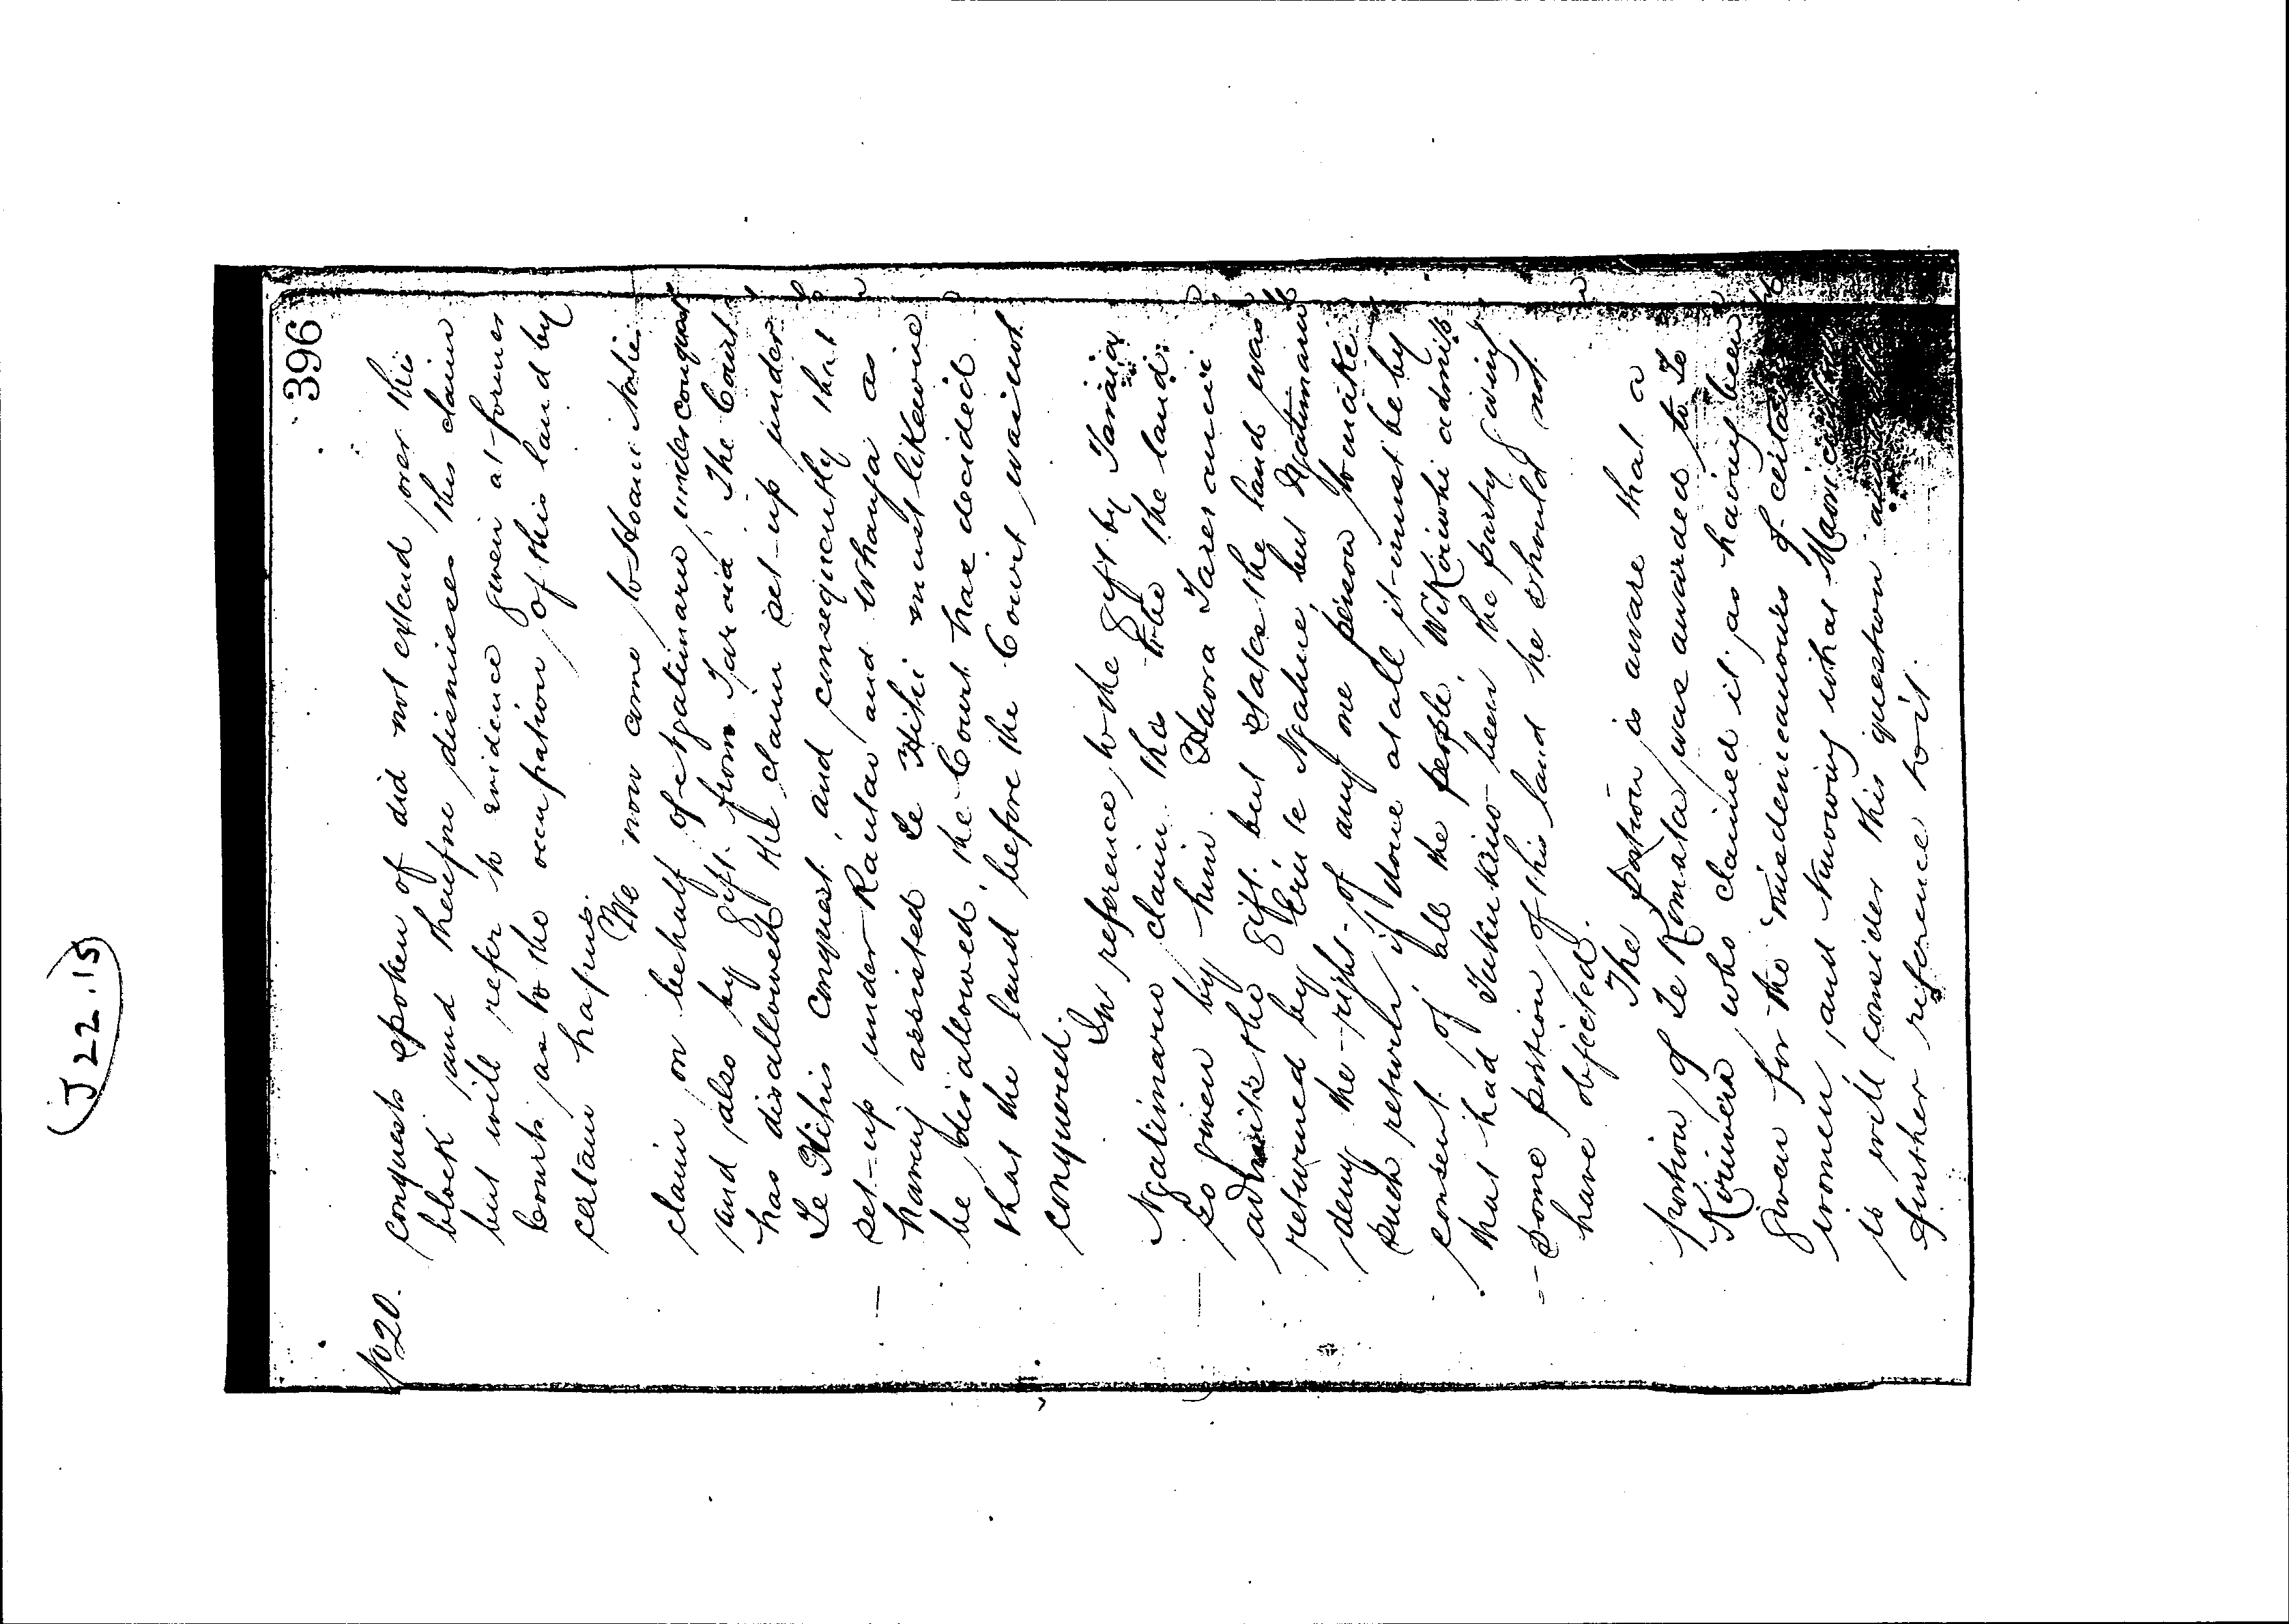 (J 22.15)
396
No 20.
conquests spoken of did not extend over this
block and therefore dismisses this claim
but will refer to evidence given at former
Courts as to the occupation of this land by
certain hapus.
We now come to Hoani
claim on behalf of Ngatimaru under conquest
and also by gift from Taraia. The Court
has disallowed the claim set-up under
Te Hihis conquest, and consequently that
set-up under Rautao and Whanga as
having assisted Te Hihi must likewise
be disallowed, the Court has decided
that the land before the Court was not
conquered.
In reference to the gift by Taraia
Ngatimaru claim tho the the land
so given by him. Haora Tareranui
admits the gift but states the land was
returned by to Ngahue, but Ngatimaru
deny the right of any one person to make
such return if done at all it must be by
consent of all the people, Wi Koiwhi admits
that had Tukukino been the party giving
some portion of his land he should not
have objected.
The portion is aware that a
portion of Te Komata was awarded to Te
Koinera who claimed it as having been
given for the misdemeanours of certain
women and knowing what Maori custom
is will consider this question
further reference to it.